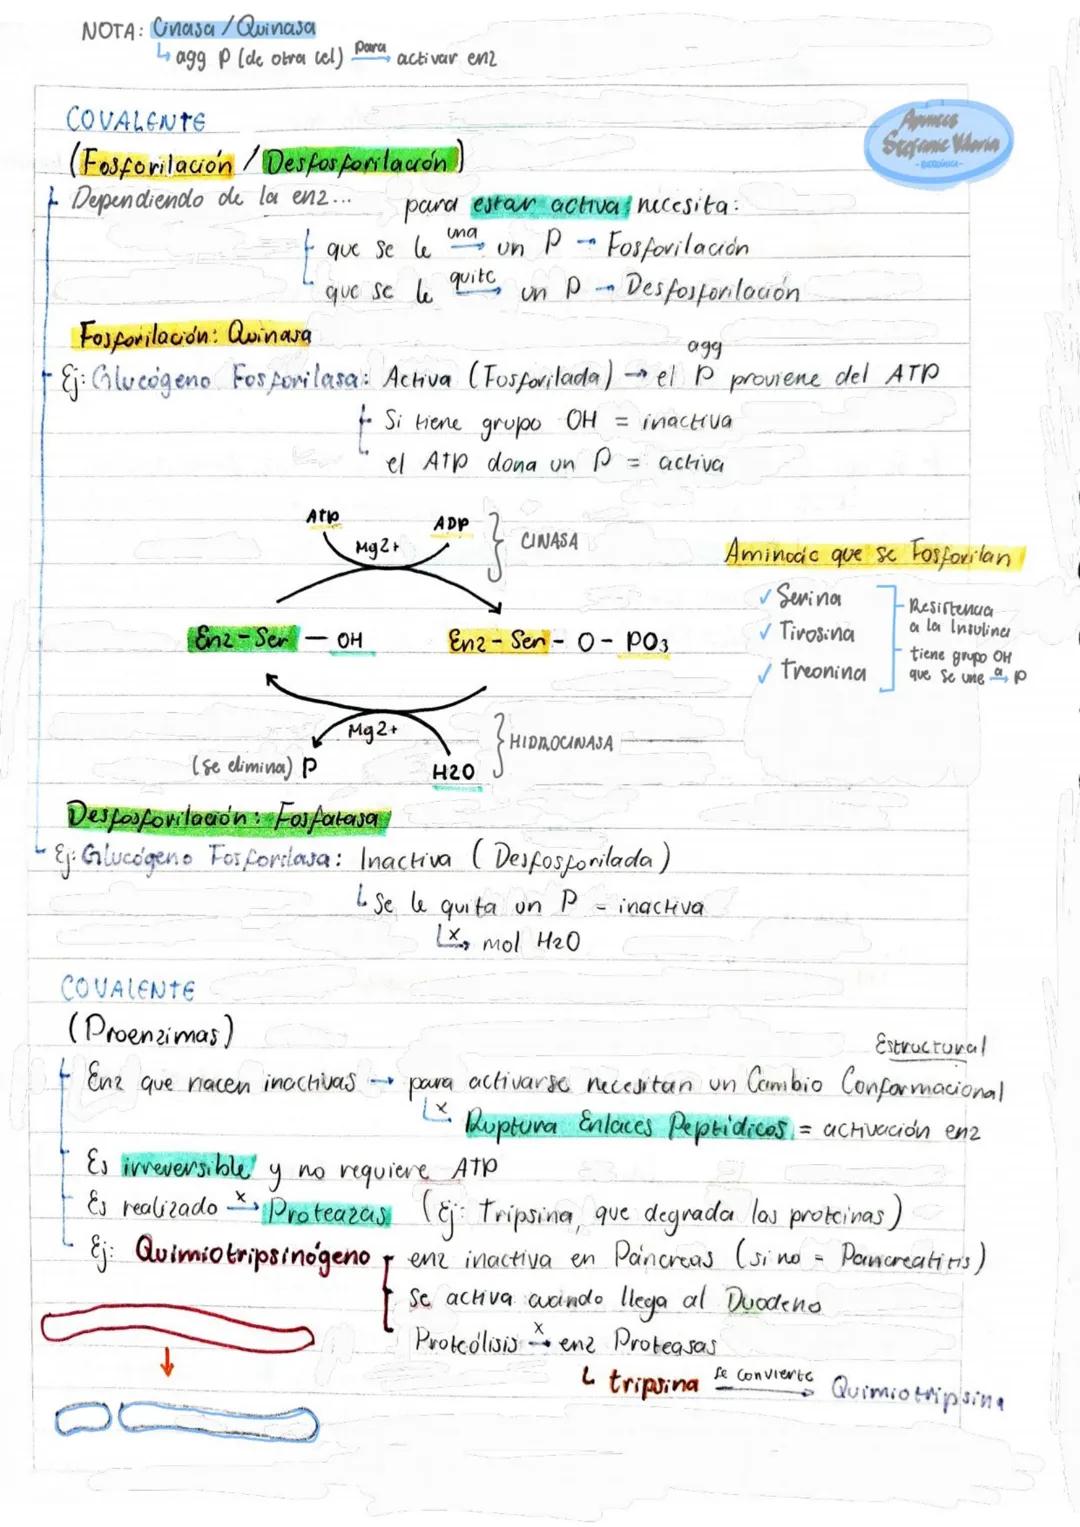 NOTA: Cinasa / Quinasa
↳ agg P (de otra cel) para → activar enz
COVALENTE
(Fosforilación / Desfosforilación)
Apuntes
Stefanie Viloria
- BIOQUÍMICA -
Dependiendo de la enz...
para estar activa necesita:
que se le una → un P → Fosforilación
que se le quite → un P → Desfosforilación
Fosforilación: Quinasa
agg
Ej: Glucógeno Fosforilasa: Activa (Fosforilada) → el P proviene del ATP
Si tiene grupo OH = inactiva
el ATP dona un P = activa
ATP ADP
Mg2+
CINASA
Aminoác que se Fosforilan
✓ Serina
✓ Tirosina
✓ Treonina
Resistencia
a la Insulina
tiene grupo OH
que se une a → P
Enz - Ser - OH
Enz - Ser - O - PO3
Mg2+
HIDROCINASA
(se elimina) P
H2O
Desfosforilación: Fosfatasa
Ej: Glucógeno Fosforilasa: Inactiva (Desfosforilada)
↳ Se le quita un P = inactiva
↳ x → mol H2O
COVALENTE
(Proenzimas)
Estructural
Enz que nacen inactivas → para activarse necesitan un Cambio Conformacional
↳ x Ruptura Enlaces Peptídicos = activación enz
Es irreversible y no requiere ATP
Es realizado x → Proteazas (Ej: Tripsina, que degrada las proteinas)
Ej: Quimiotripsinógeno
enz inactiva en Páncreas (si no = Pancreatitis)
Se activa cuando llega al Duodeno
Proteólisis x → enz Proteasas
↳ tripsina se convierte → Quimiotripsina